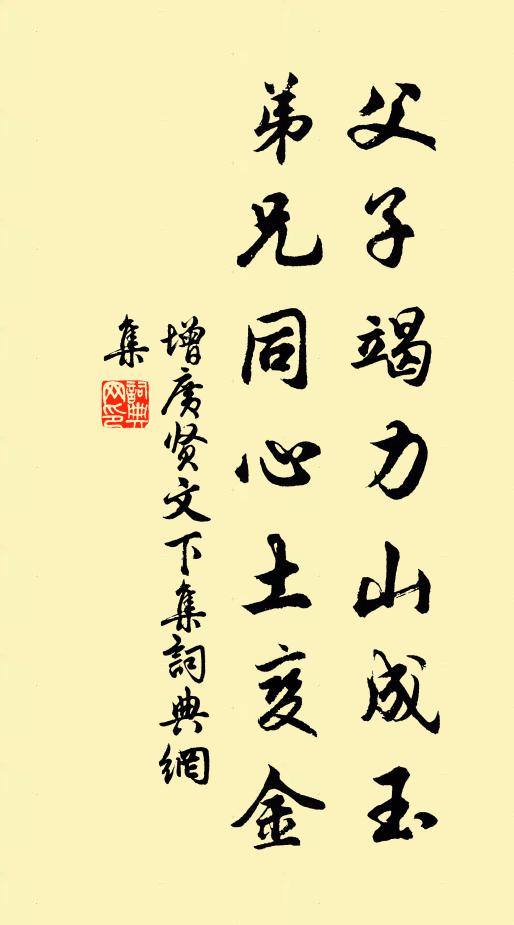 父子竭力山成玉
弟兄同心土变金
增广贤文下集詞典網
集
詞典网印